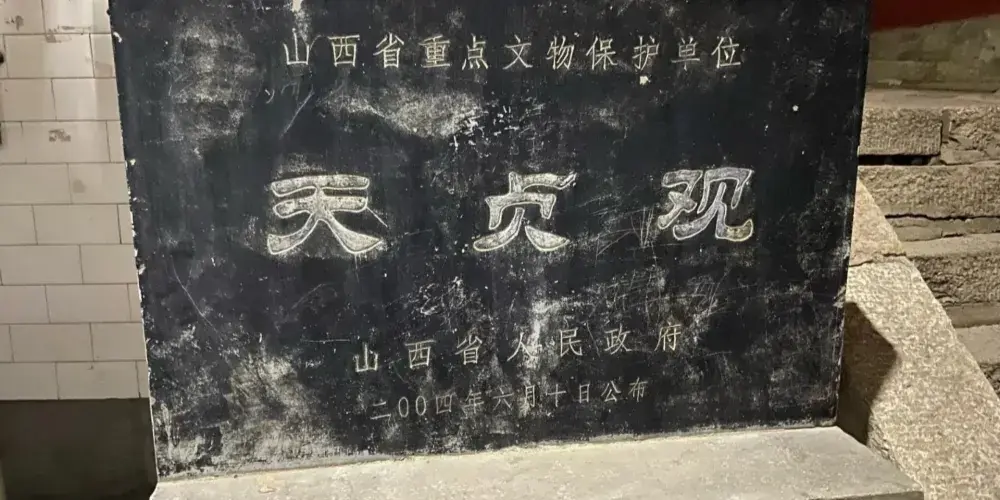 山西省重点文物保护单位
天贞观
山西省人民政府
二〇〇四年六月十日公布